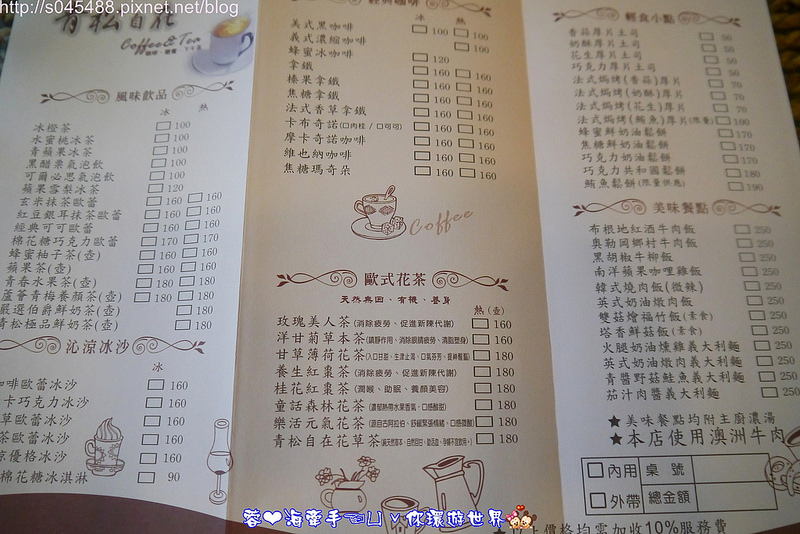 http://s045488.pixnet.net/blog
青松自在
Coffee & Tea
風味飲品
冰 熱
冰橙茶 100
水蜜桃冰茶 100
青蘋果冰茶 100
黑醋栗氣泡飲 100
可爾必思氣泡飲 100
蘋果雪梨冰茶 120
玄米抹茶歐蕾 160 160
紅豆銀耳抹茶歐蕾 160 160
經典可可歐蕾 160 160
棉花糖巧克力歐蕾 170 170
蜂蜜柚子茶(壺) 160 160
蘋果茶(壺) 160 160
青春水果茶(壺) 180 180
蘆薈青梅養顏茶(壺) 180 180
嚴選伯爵鮮奶茶(壺) 180
青松極品鮮奶茶(壺) 180
沁涼冰沙
冰
咖啡歐蕾冰沙 160
卡巧克力冰沙 160
草歐蕾冰沙 160
茶歐蕾冰沙 160
京優格冰沙 160
棉花糖冰淇淋 90
經典咖啡
冰 熱
美式黑咖啡 100 100
義式濃縮咖啡 100
蜂蜜冰咖啡 120
拿鐵 160 160
榛果拿鐵 160 160
焦糖拿鐵 160 160
法式香草拿鐵 160 160
卡布奇諾(口肉桂 / 口可可) 160 160
摩卡奇諾咖啡 160 160
維也納咖啡 160 160
焦糖瑪奇朵 160 160
Coffee
歐式花茶
天然無因、有機、養身
熱(壺)
玫瑰美人茶(消除疲勞、促進新陳代謝) 160
洋甘菊草本茶(鎮靜作用、消除眼睛疲勞、清脂塑身) 160
甘草薄荷花茶(入口甘甜、生津止渴、口氣芬芳、提神醒腦) 180
養生紅棗茶(消除疲勞、促進新陳代謝) 180
桂花紅棗茶(潤喉、助眠、養顏美容) 180
童話森林花茶(濃郁熱帶水果香氣，口感酸甜) 180
樂活元氣花茶(源自古阿拉伯、舒緩緊張情緒，口感微酸) 180
青松自在花草茶 180
輕食小點
香蒜厚片土司 50
奶酥厚片土司 50
花生厚片土司 50
巧克力厚片土司 50
法式焗烤(香蒜)厚片 70
法式焗烤(奶酥)厚片 70
法式焗烤(花生)厚片 70
法式焗烤(鮪魚)厚片(限量) 100
蜂蜜鮮奶油鬆餅 170
焦糖鮮奶油鬆餅 170
巧克力奶油鬆餅 170
巧克力共和國鬆餅 180
鮪魚鬆餅(限量供應) 190
美味餐點
布根地紅酒牛肉飯 250
奧勒岡鄉村牛肉飯 250
黑胡椒牛柳飯 250
南洋蘋果咖哩雞飯 250
韓式燒肉飯(微辣) 250
英式奶油燉肉飯 250
雙菇燴福竹飯(素食) 250
塔香鮮菇飯(素食) 250
火腿奶油燻雞義大利麵 250
英式奶油燉肉義大利麵 250
青醬野菇鮭魚義大利麵 250
茄汁肉醬義大利麵 250
★美味餐點均附主廚濃湯
★本店使用澳洲牛肉
內用 桌號
外帶 總金額
★以上價格均需加收10%服務費
蓉❤海牽手 LI v 依環遊世界